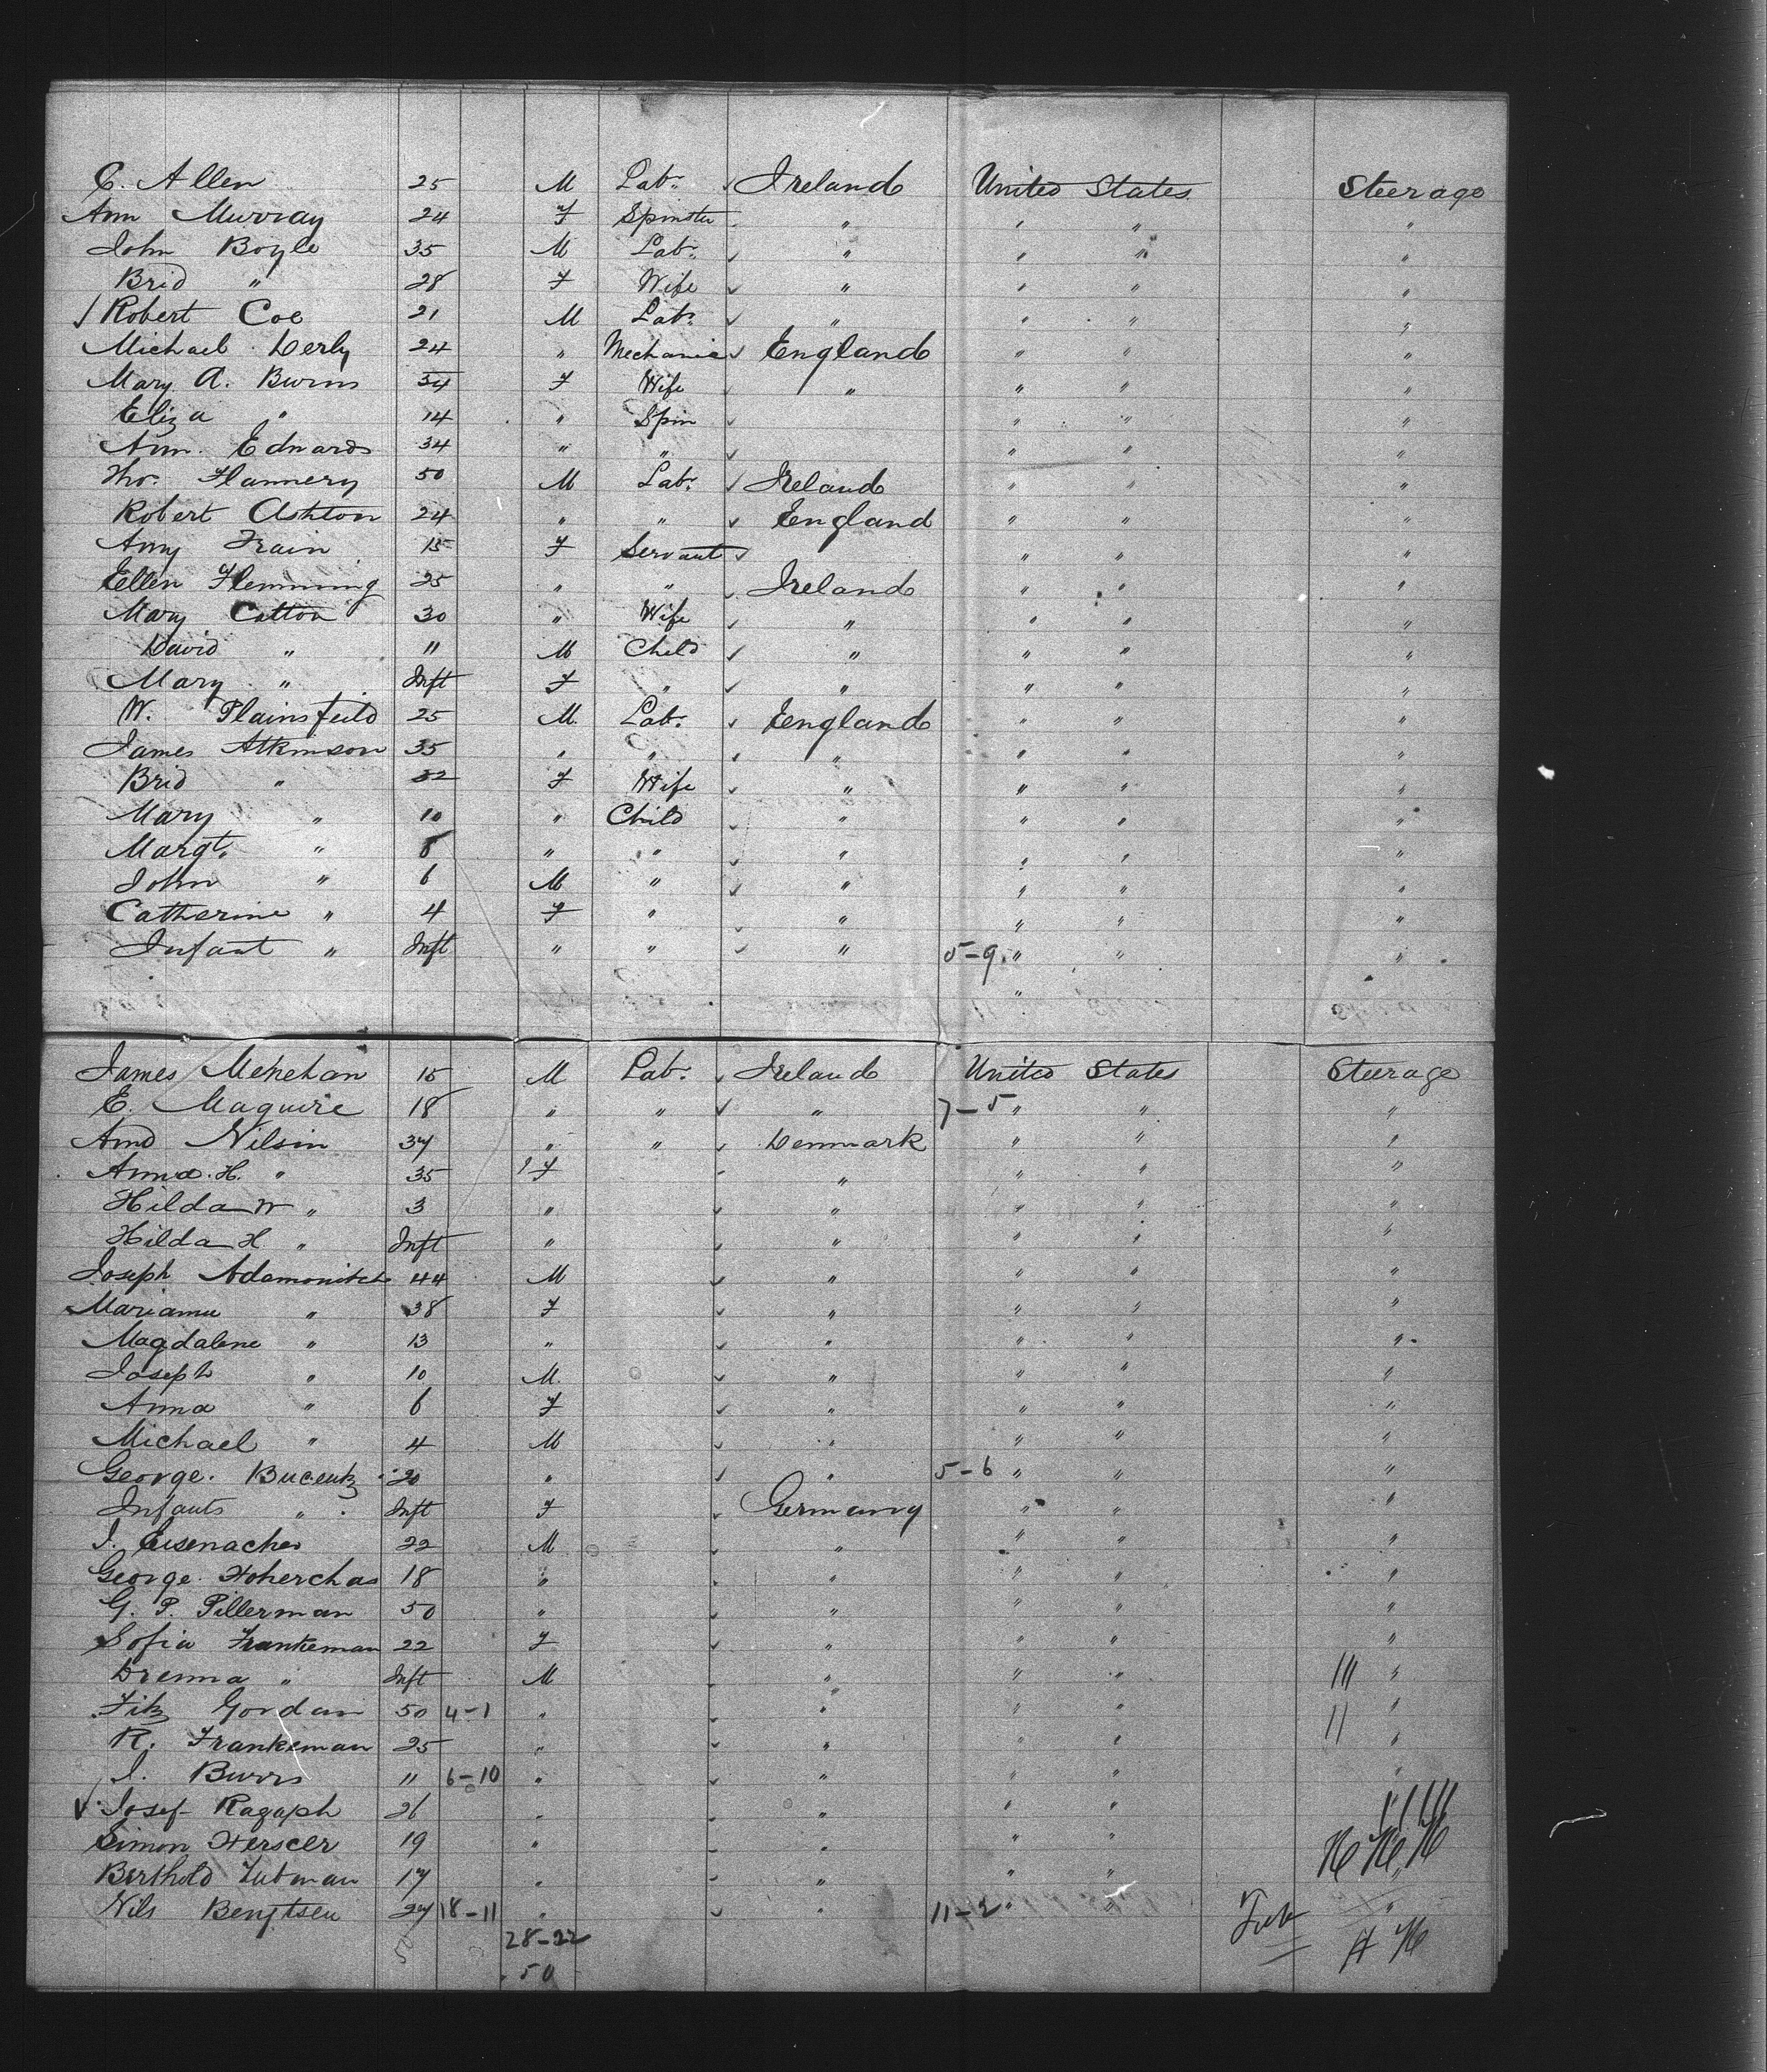 C. Allen 25 M Lab. Ireland United States Steerage
Ann Murray 24 F Spinster " " " "
John Boyle 35 M Lab. " " " "
Brid " 28 F Wife " " " "
Robert Coe 21 M Lab. " " " "
Michael Derby 24 " Mechanic England " " "
Mary A. Burns 34 F Wife " " " "
Eliza " 14 " Spin " " "
Ann. Edwards 34 " " " " "
Tho. Flannery 50 M Lab. Ireland " " "
Robert Ashton 24 " " England " " "
Amy Train 15 F Servant " " "
Ellen Flemming 25 " " Ireland " " "
Mary Cotton 30 " Wife " " " "
David " 11 M Child " " " "
Mary " Inft F " " " " "
W. Plainsfeild 25 M. Lab. England " " "
James Atkinson 35 " " " " " "
Brid " 32 F Wife " " " "
Mary " 10 " Child " " " "
Margt. " 8 " " " " " "
John " 6 M " " " " "
Catherine " 4 F " " " " "
Infant " Inft " " " 5-9. " " "
"
James Menehan 15 M Lab. Ireland United States Steerage
E. Maguire 18 " " " 7-5 " " "
And Nilsin 37 " " Denmark " " "
Anna. H. " 35 F " " " "
Hilda W " 3 " " " " "
Hilda H " Inft " " " " "
Joseph Adamonitch 44 M " " " "
Mariamu " 38 F " " " "
Magdalene " 13 " " " " "
Joseph " 10 M. " " " "
Anna " 6 F " " " "
Michael " 4 M " " " "
George. Buceutz 20 " " 5-6 " " "
Infants " Inft F Germany " " "
J. Eisenacher 22 M " " " "
George. Hoherchas 18 " " " " "
G. P. Pillerman 50 " " " " "
Sofia Frankeman 22 F " " " "
Drenna " Inft M " " " "
Fitz Gordan 50 4-1 " " " " "
R. Frankeman 25 " " " " "
J. Burrs 11 6-10 " " " " "
Josef Ragaph 26 " " " "
Simon Herscer 19 " " " "
Berthold Lubman 17 " " " "
Nils Bengtsen 27 18-11 " " 11-2 " " "
28-22
50